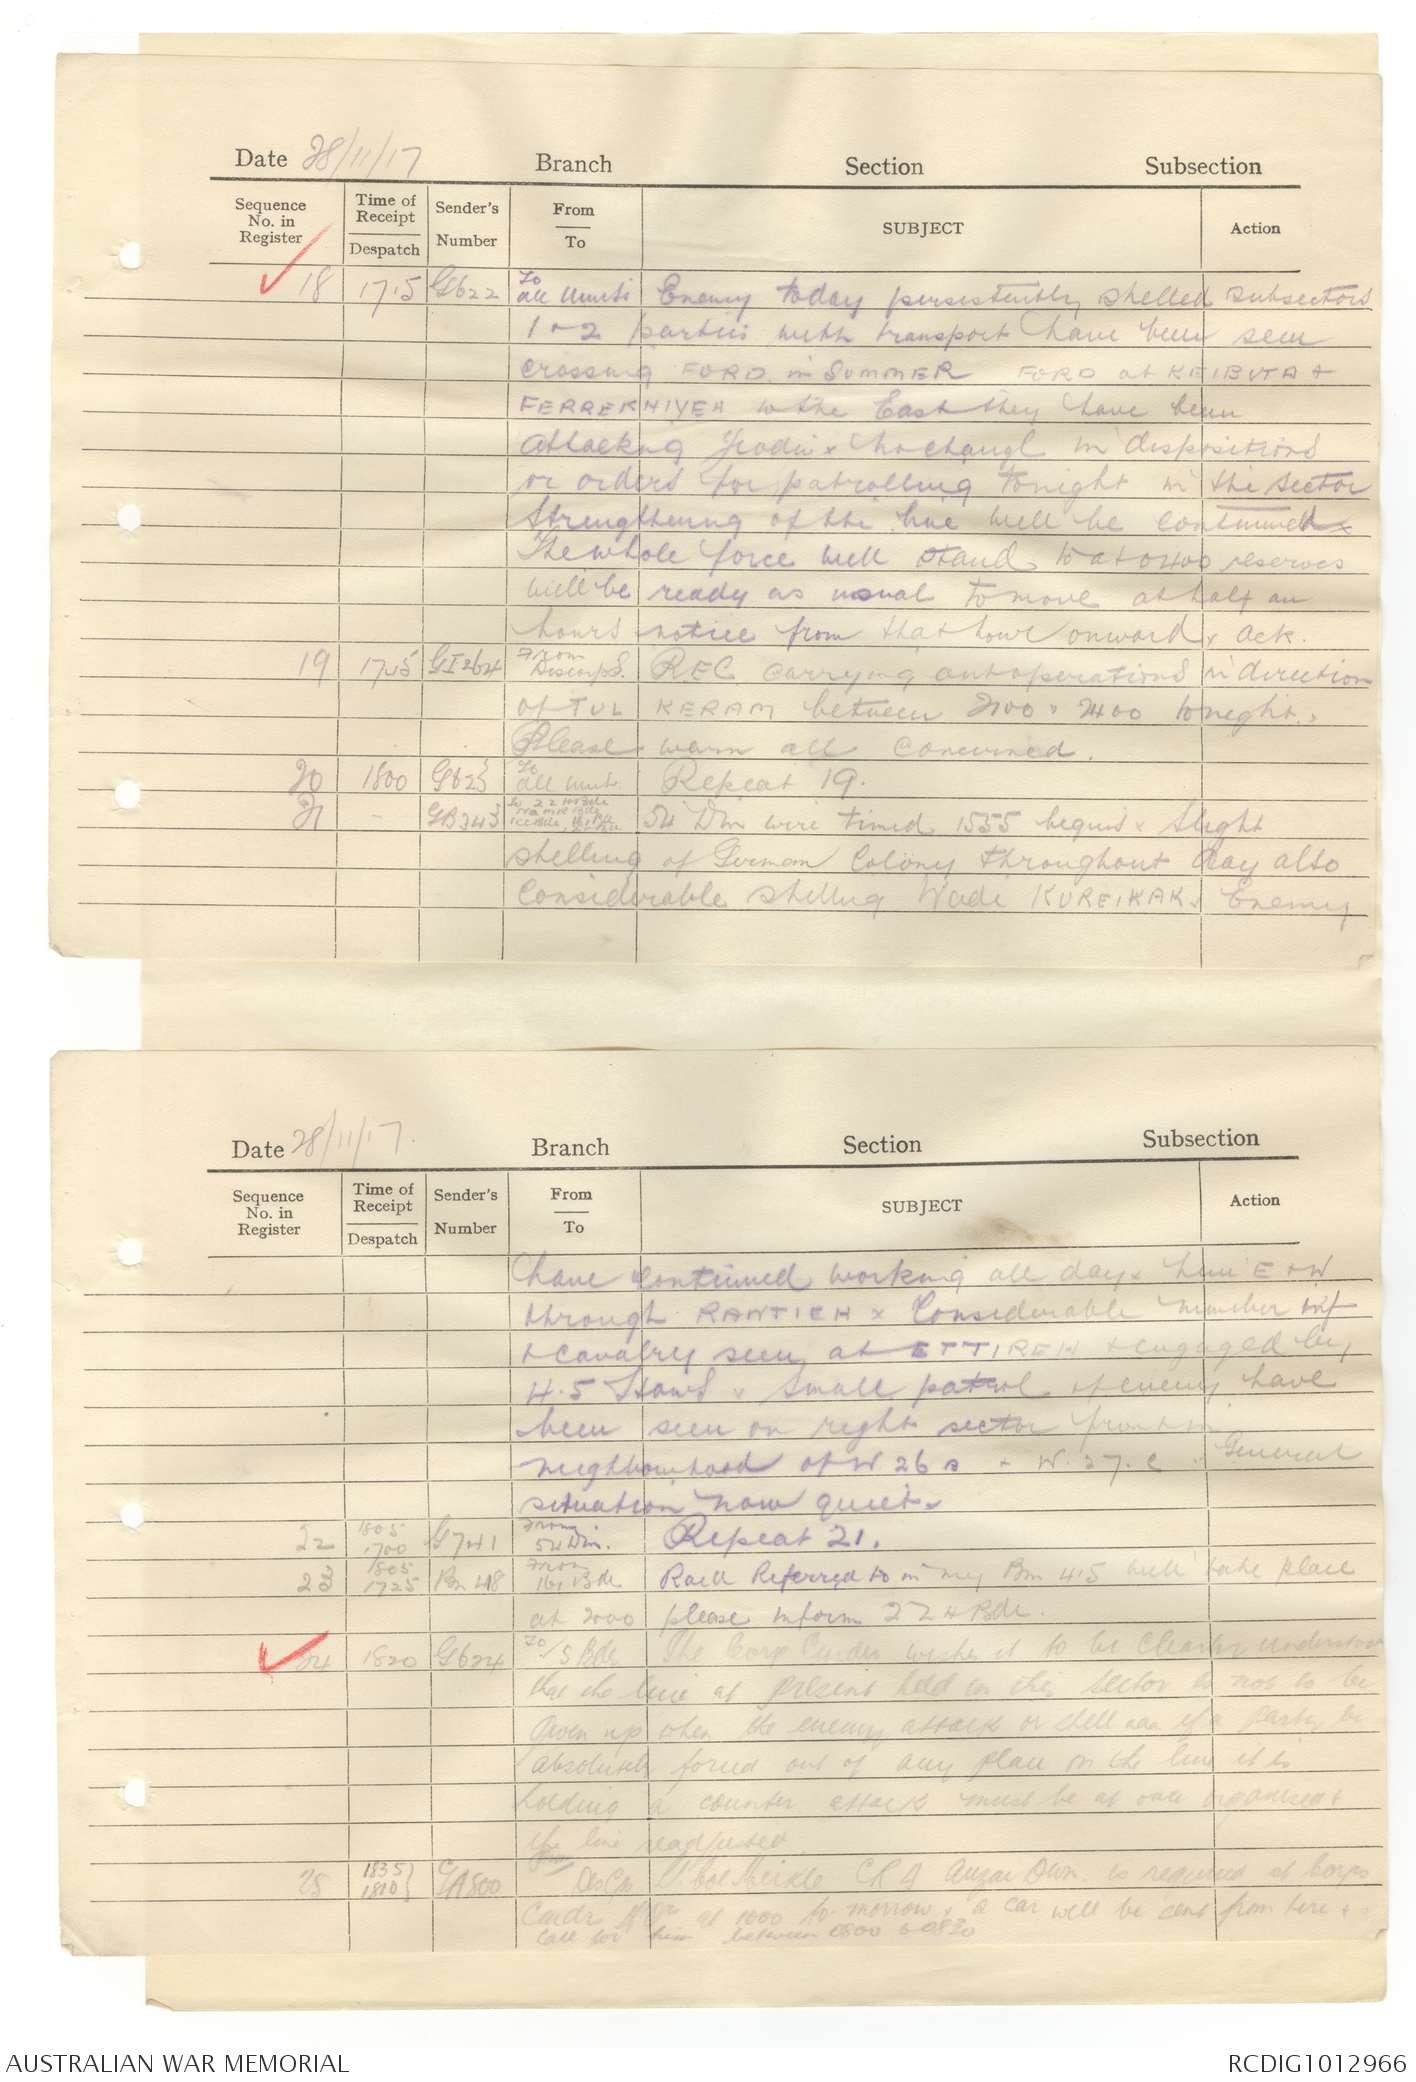 Date 28/11/17 Branch Section Subsection
Sequence No. in Register | Time of Receipt Despatch | Sender's Number | From To | SUBJECT | Action
18 1715 G622 To all Units Enemy today persistently shelled subsectors
1 & 2 parties with transport have been seen
crossing FORD in SUMMER FORD at KEIBUTA +
FERREKHIYEH to the East they have been
attacking x No change in dispositions
or orders for patrolling tonight in the sector
strengthening of the line will be continued x
The whole force will stand to at 0400 reserves
will be ready as usual to move at half an
hours notice from that hour onward x ack.
19 1715 GI264 From Descorps. REC carrying out operations in direction
of TUL KERAM between 2100 & 2400 tonight.
Please warn all concerned.
20 1800 G623 To all Units. Repeat 19.
21 - GB343 54 Div wire timed 1555 begins x Slight
shelling of German Colony throughout day also
considerable shelling Wadi KUREIKAK x Enemy
Date 28/11/17. Branch Section Subsection
Sequence No. in Register | Time of Receipt Despatch | Sender's Number | From To | SUBJECT | Action
have continued working all day x line E & W
through RANTIEH x Considerable number inf
+ cavalry seen at ETTIREH + engaged by
4.5 Hows x Small patrol of enemy have
been seen on right sector front in
neighbourhood of W 26 & W. 27. c. General
situation now quiet.
22 1805 1700 G741 From 54 Div. Repeat 21.
23 1805 1725 Bm 418 From 161 Bde Raid Referred to in my Bm 415 will take place
at 2000 please inform 22 Bde.
24 1820 G624 To /S Bdes The Corp Comdr wishes it to be clearly understood
that the line at present held in this sector is not to be
given up when the enemy attack or shell aaa if a party be
absolutely forced out of any place in the line it is
holding a counter attack must be at once organised +
the line readjusted
25 1835 1810 GA800 From DesCps Lt Col Meikle CRA Anzac Divn. is required at Corps
Comdr HQrs at 1000 to-morrow x a car will be sent from here +
call for him between 0800 & 0830
AUSTRALIAN WAR MEMORIAL
RCDIG1012966